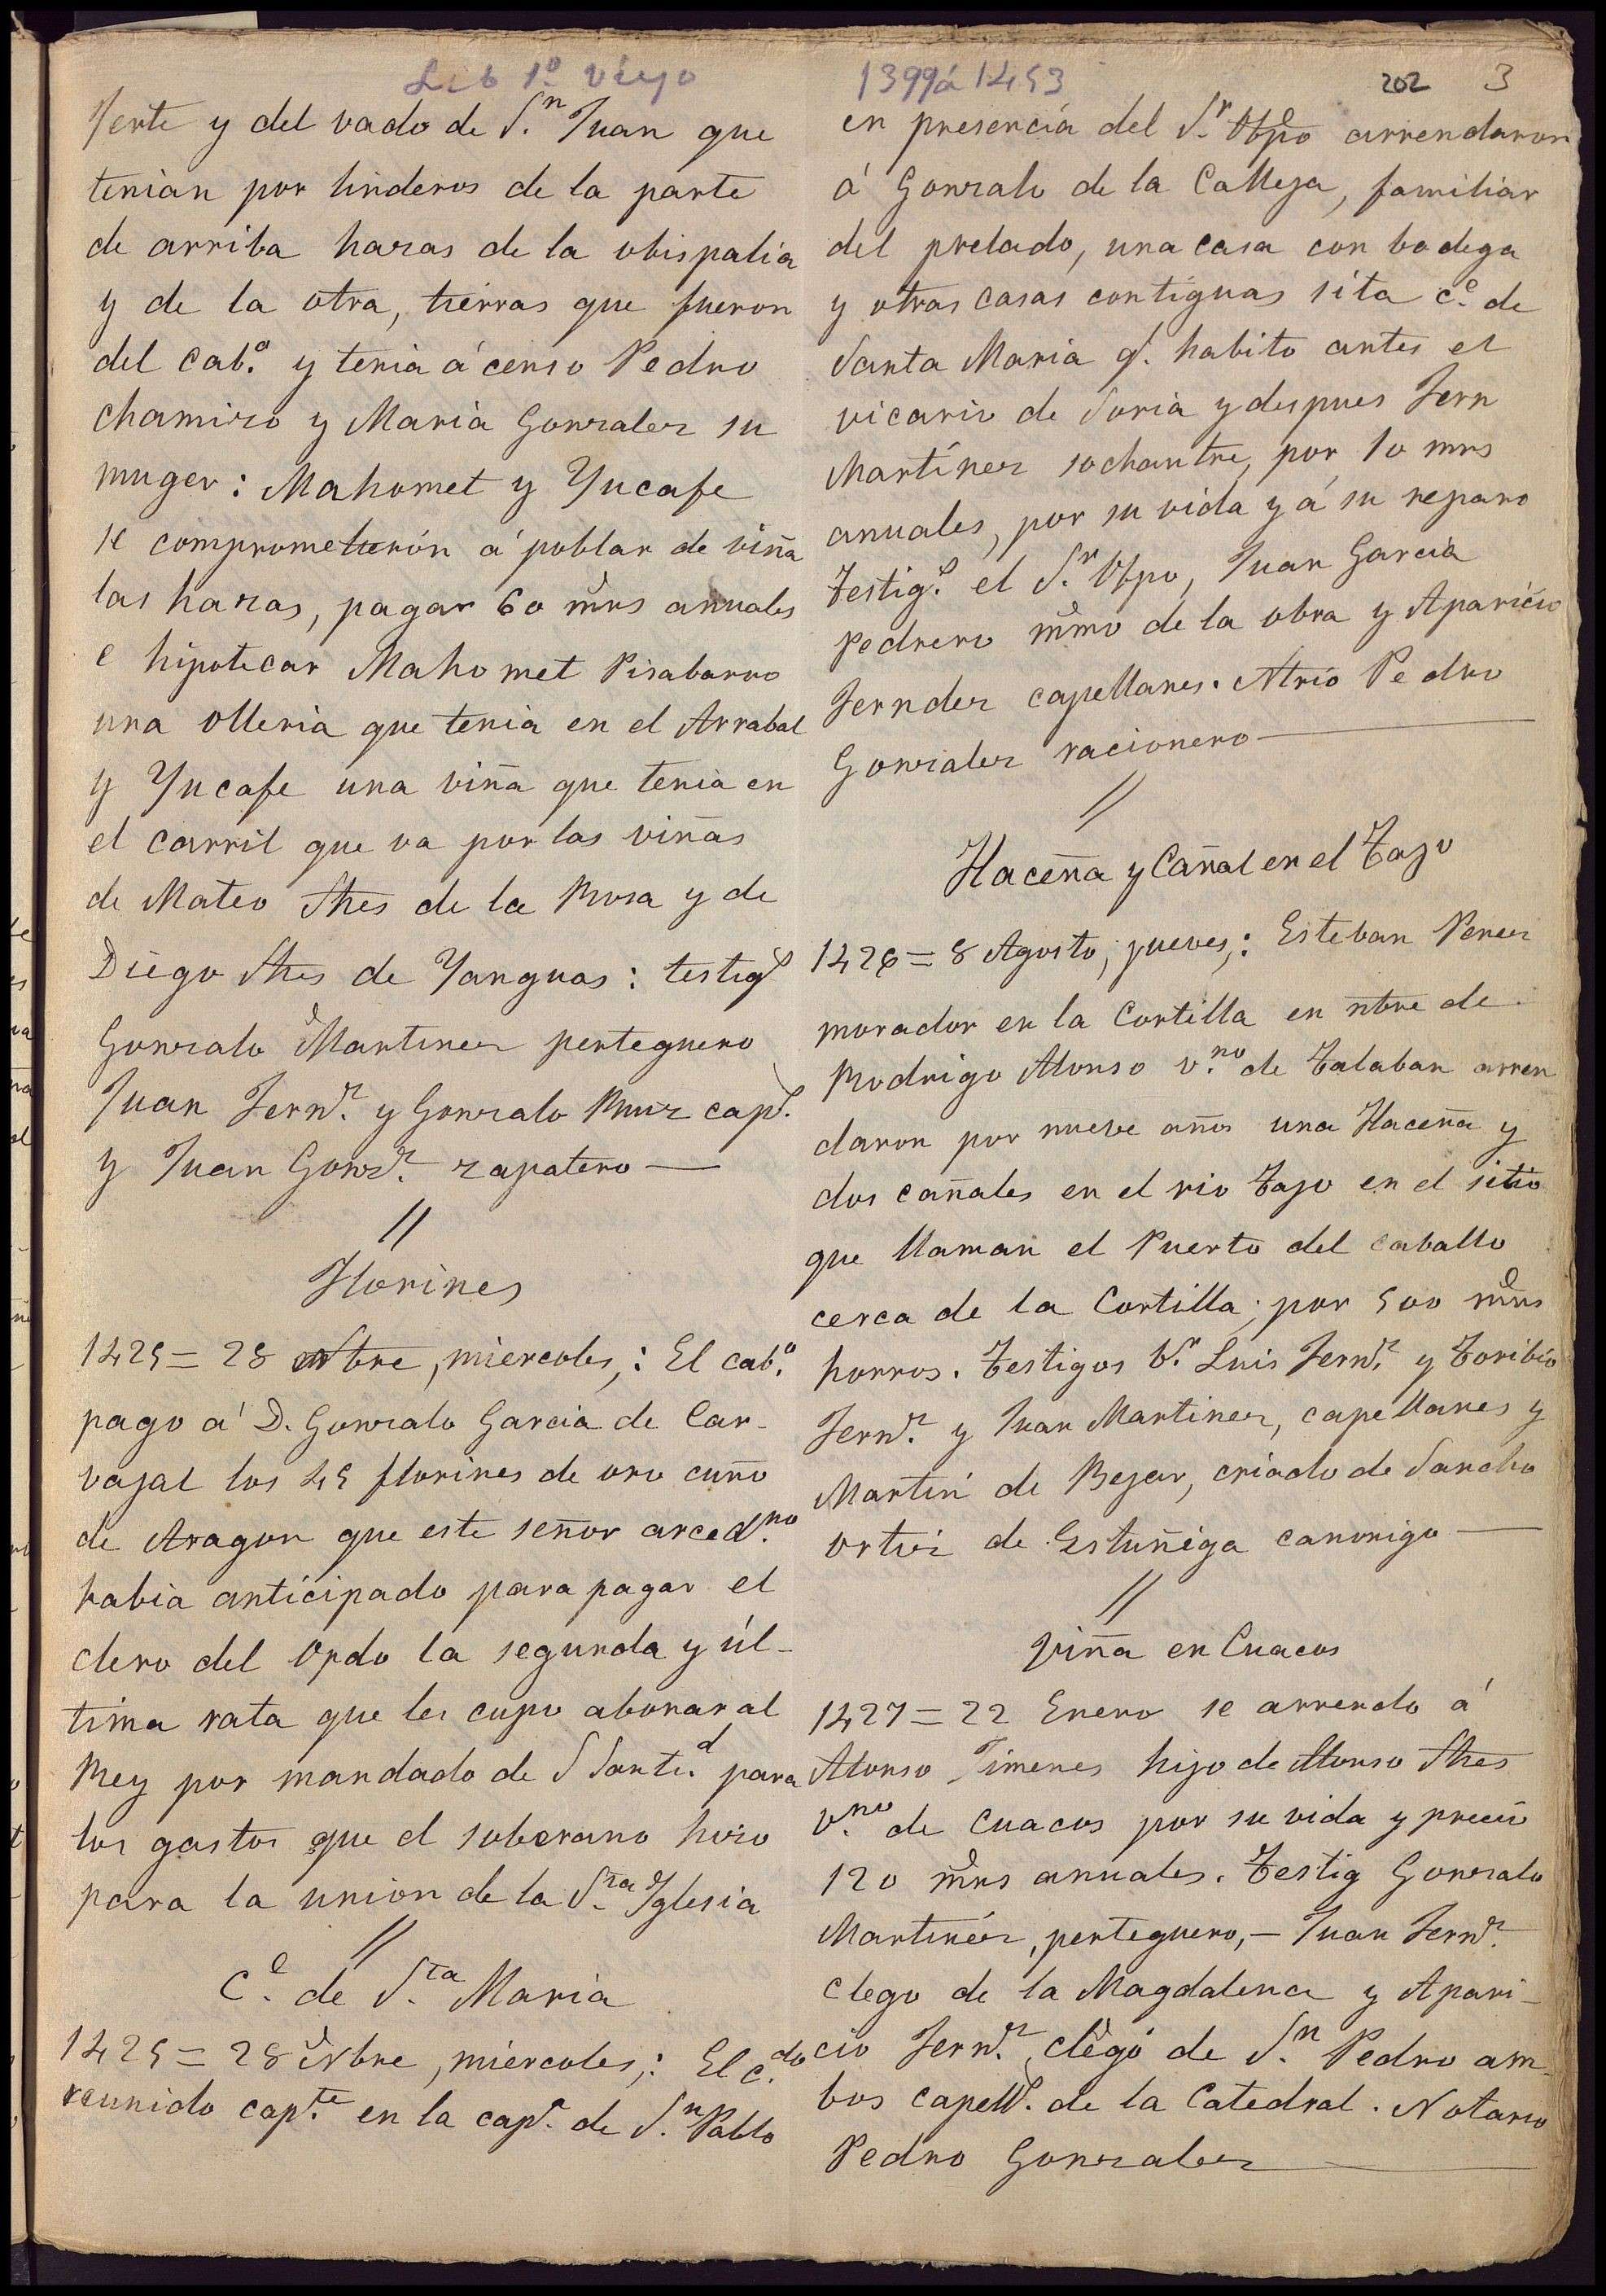 Lib 1º Viejo 1399 á 1453 202 3
Jerte y del vado de S.n Juan que
tenian por linderos de la parte
de arriba hazas de la obispalia
y de la otra, tierras que fueron
del Cab.o y tenia á censo Pedro
Chamizo y Maria Gonzalez su
muger: Mahomet y Yucafe
se comprometierón á poblar de viña
las hazas, pagar 60 mrs anuales
e hipotecar Mahomet Pisabarro
una olleria que tenia en el Arrabal
y Yucafe una viña que tenia en
el carril que va por las viñas
de Mateo Shes de la Rosa y de
Diego Shes de Yanguas: testigs
Gonzalo Martinez perteguero
Juan Fernz. y Gonzalo Ruiz caps.
y Juan Gonz. zapatero —
//
Florines
1425 = 28 Nbre, miercoles,: El cab.o
pago á D. Gonzalo Garcia de Car-
vajal los 45 florines de oro cuño
de Aragon que este señor arced.no
habia anticipado para pagar el
clero del Opdo la segunda y úl-
tima rata que les cupo abonar al
Rey por mandado de S Santi.d para
los gastos que el soberano hizo
para la union de la S.ta Iglesia
//
C.e de S.ta Maria
1425 = 28 Nbre, miercoles,: El c.do
reunido cap.te en la cap.a de S.n Pablo
en presencia del S.r Obpo arrendaron
á Gonzalo de la Calleja, familiar
del prelado, una casa con bodega
y otras casas contiguas sita c.e de
Santa Maria q. habito antes el
vicario de Soria y despues Fern
Martínez sochantre, por 10 mrs
anuales, por su vida y á su reparo
Testig.s el S.r Obpo, Juan Garcia
Pedrero mmo de la obra y Aparicio
Ferndez capellanes. Ntrio Pedro
Gonzalez racionero —
//
Haceña y Cañal en el Tajo
1426 = 8 Agosto, jueves,: Esteban Perez
morador en la Cortilla en nbre de
Rodrigo Alonso v.no de Talaban arren
daron por nueve años una Haceña y
dos cañales en el rio Tajo en el sitio
que llaman el Puerto del caballo
cerca de la Cortilla; por 500 mrs
horros. Testigos V.r Luis Fernz. y Toribio
Fernz. y Juan Martinez, capellanes y
Martin de Bejar, criado de Sancho
Ortiz de Estuñiga canonigo —
//
Viña en Cuacos
1427 = 22 Enero se arrendo á
Alonso Jimenes hijo de Alonso Shes
v.no de Cuacos por su vida y precio
120 mrs anuales. Testig Gonzalo
Martinéz, perteguero, — Juan Fernz.
clego de la Magdalena y Apari-
cio Fernz. clego de S.n Pedro am-
bos capells. de la Catedral. Notario
Pedro Gonzalez —